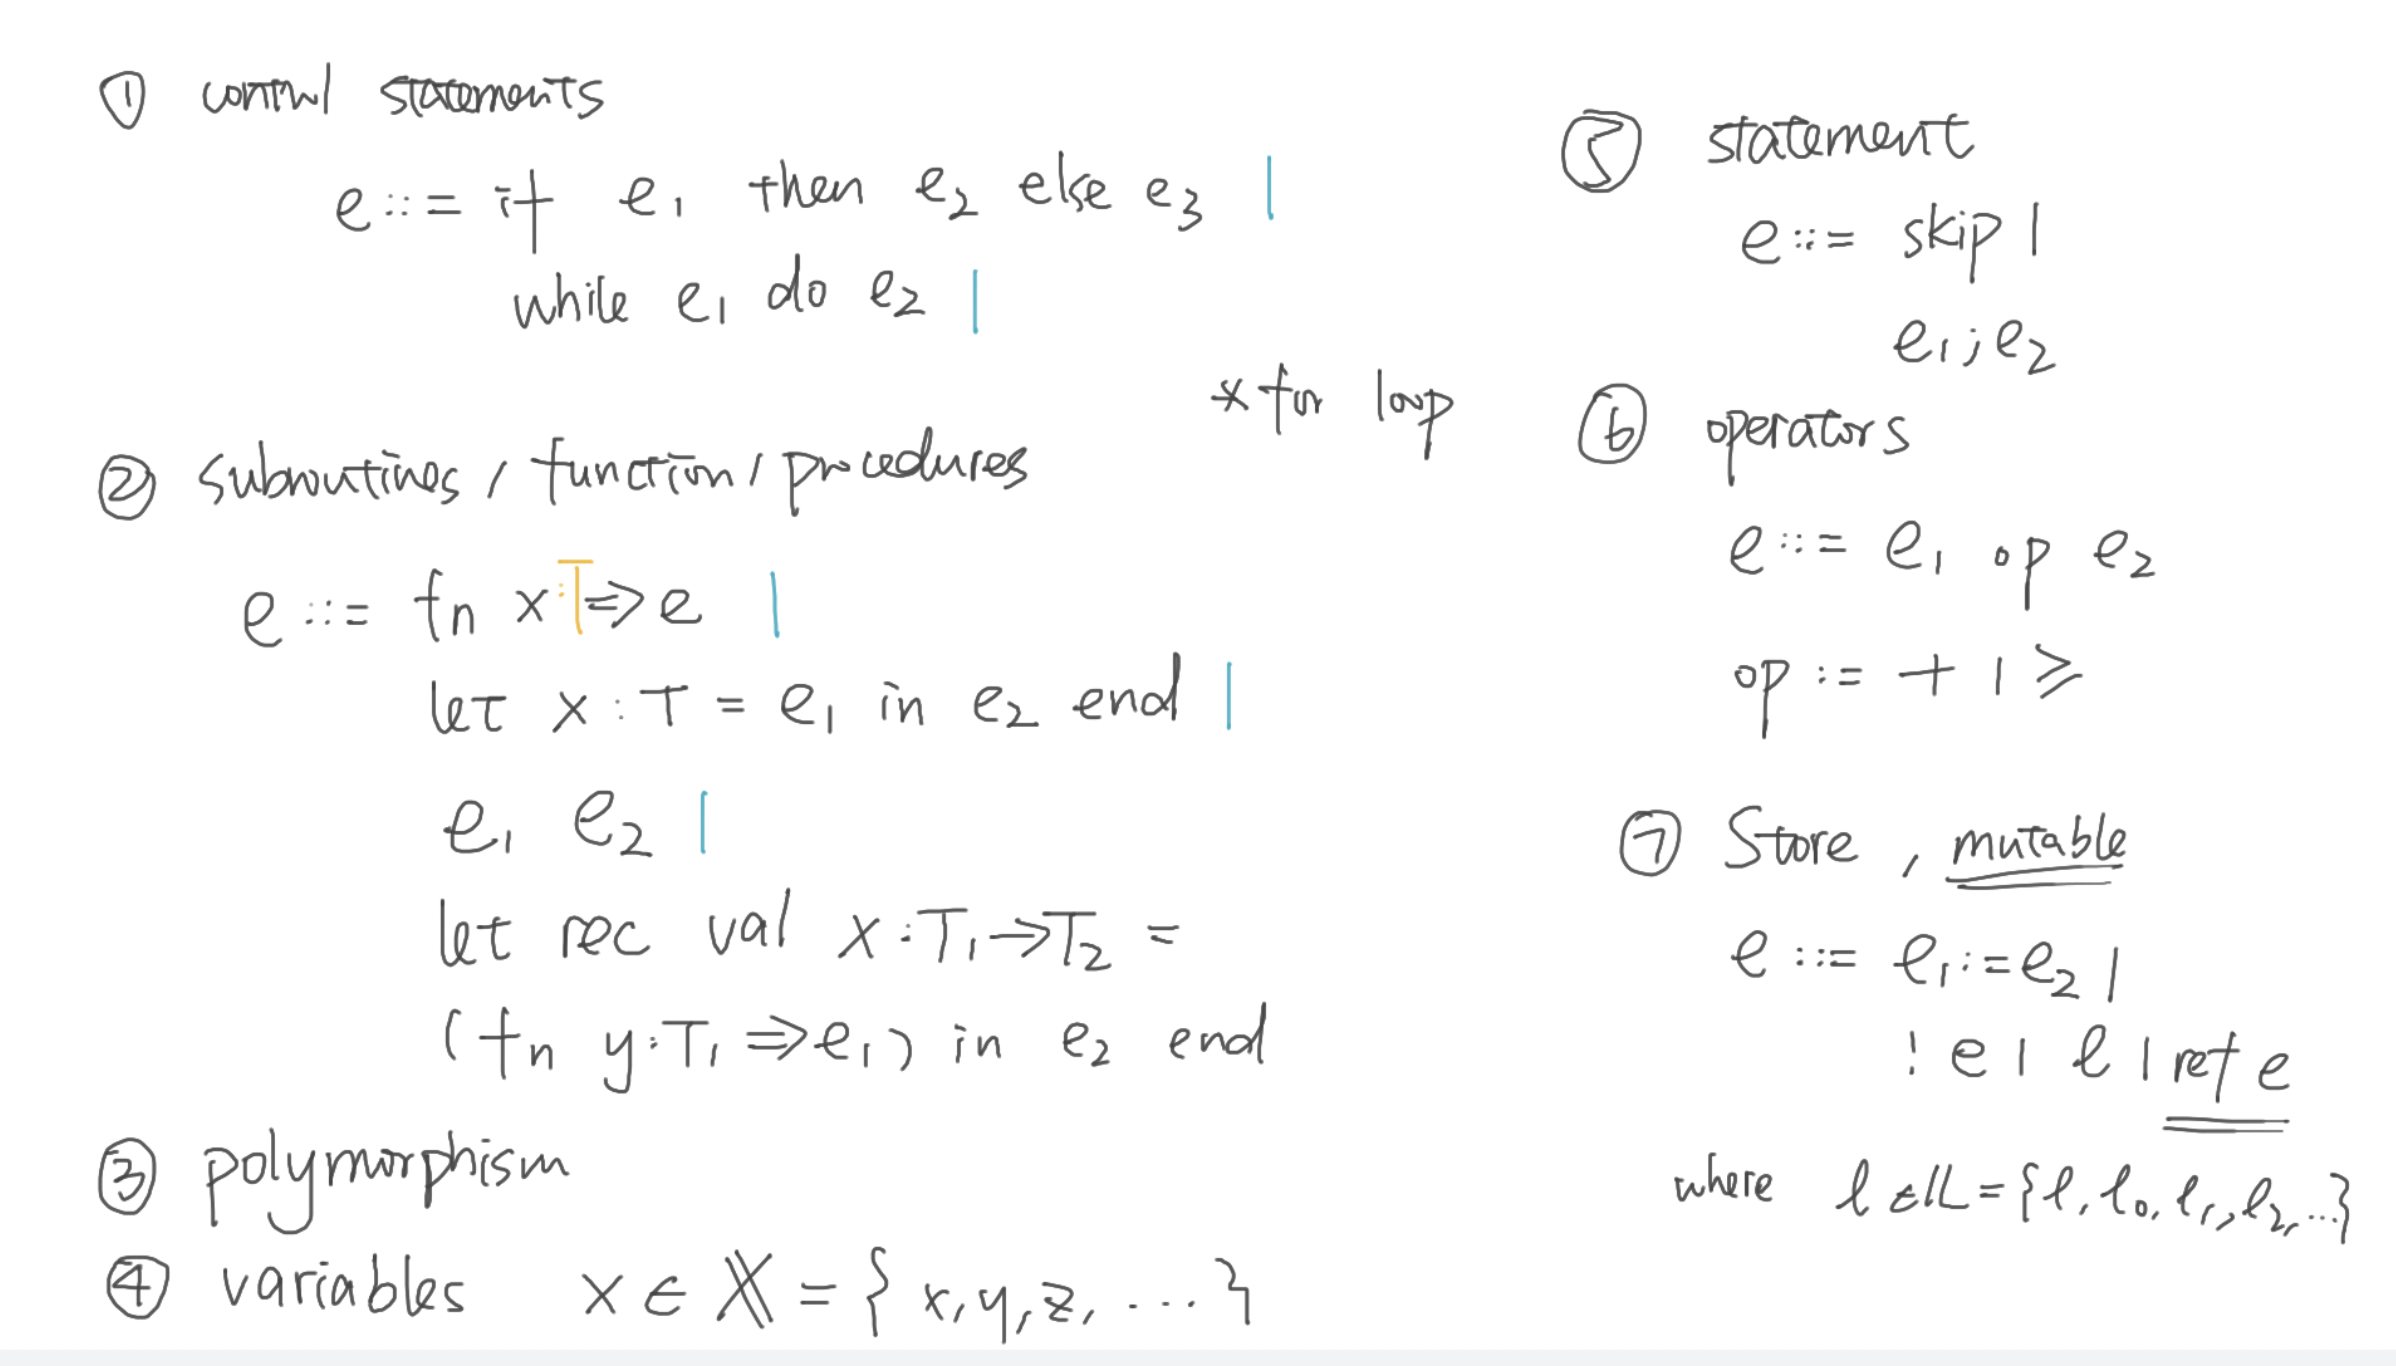 ① control statements
e ::= if e₁ then e₂ else e₃ |
while e₁ do e₂ |
* for loop
② subroutines / function / procedures
e ::= fn x:T⇒e |
let x:T = e₁ in e₂ end |
e₁ e₂ |
let rec val x:T₁→T₂ =
(fn y:T₁⇒e₁) in e₂ end
③ polymorphism
④ variables x ∈ 𝕏 = { x, y, z, ... }
⑤ statement
e ::= skip |
e₁;e₂
⑥ operators
e ::= e₁ op e₂
op := + | ≥
⑦ Store, mutable
e ::= e₁:=e₂ |
! e | ℓ | ref e
where ℓ ∈ 𝕃 = {ℓ, ℓ₀, ℓ₁, ℓ₂, ...}